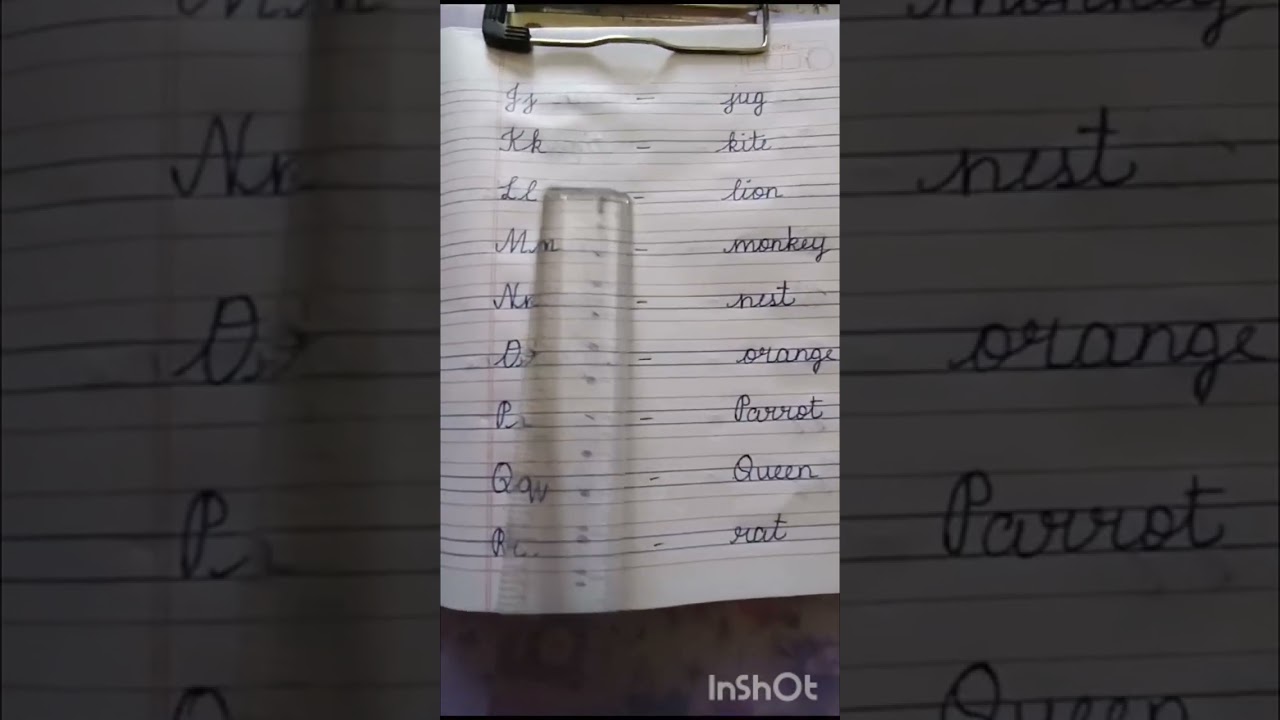 Jj - jug
Kk - kite
Ll - lion
Mm - monkey
Nn - nest
O - orange
P - Parrot
Qq - Queen
R - rat
InShOt